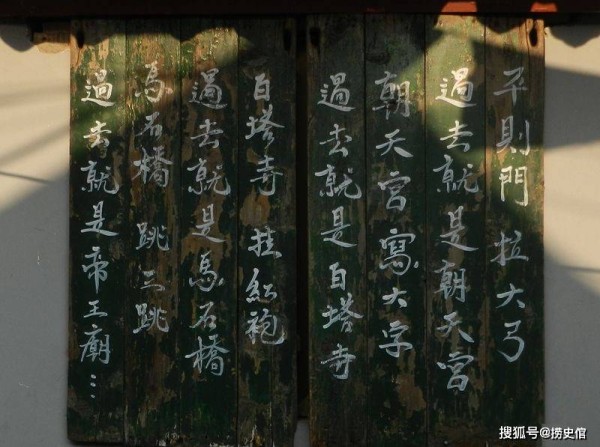 平則門 拉大弓
過去就是朝天宮
朝天宮寫大字
過去就是白塔寺
白塔寺 挂紅袍
過去就是馬石橋
馬石橋 跳三跳
過去就是帝王廟…
搜狐号@捞史倌